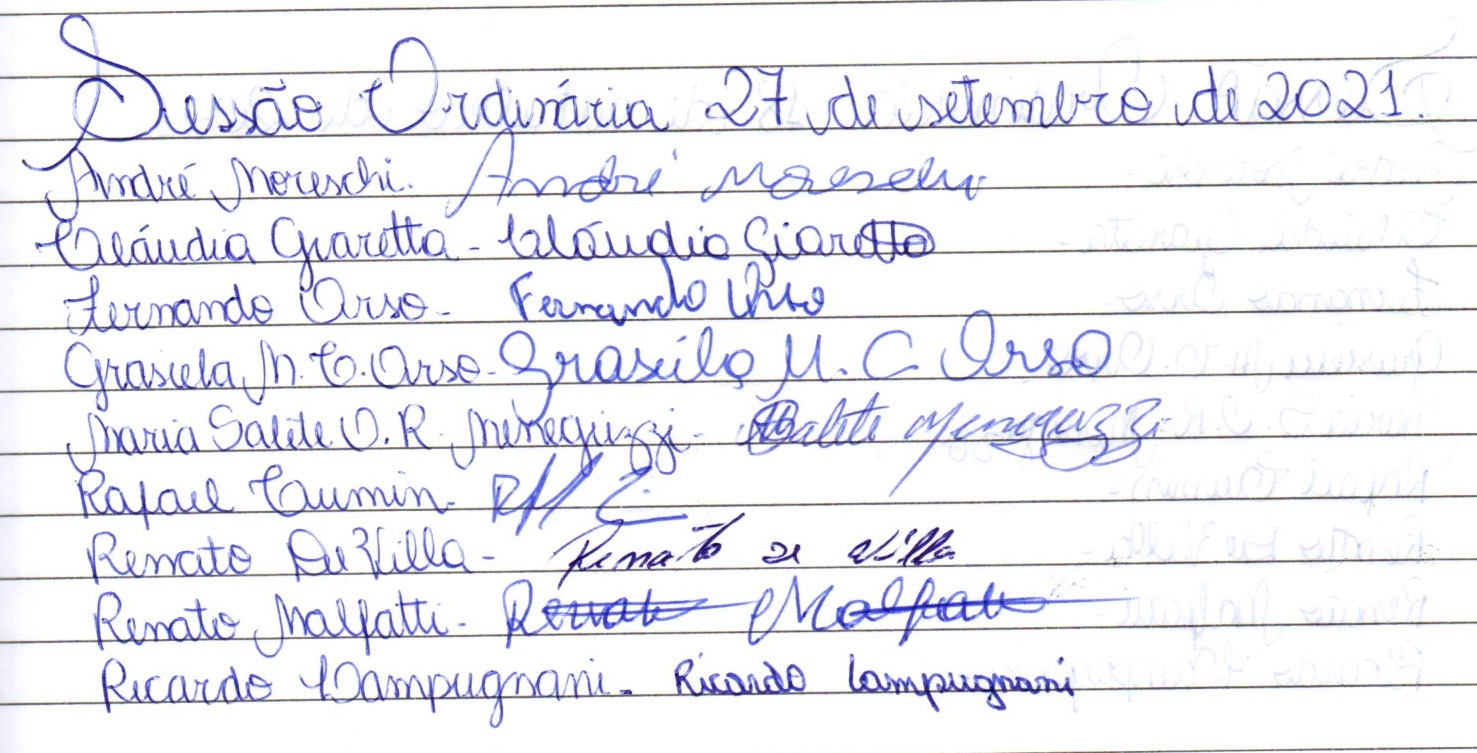 Sessão Ordinária 27 de setembro de 2021.
André Moreschi. André Moreschi
Cláudia Giaretta - Cláudia Giaretta
Fernando Orso - Fernando Orso
Grasiela M. C. Orso - Grasiela M. C. Orso
Maria Salete O. R. Meneguzzi - Salete Meneguzzi
Rafael Cumin -
Renato De Villa - Renato de Villa
Renato Malfatti - Renato Malfatti
Ricardo Lampugnani - Ricardo Lampugnani